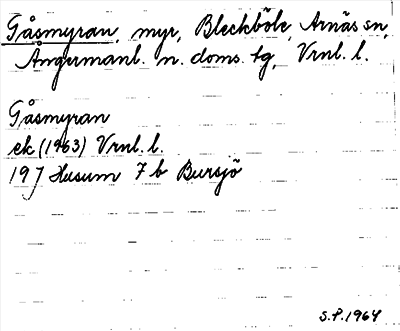 Gåsmyran, myr, Bleckböle, Arnäs sn,
Ångermanl. n. doms. tg, Vrnl. l.
Gåsmyran
ek (1963) Vrnl. l.
19 7 Husum 7 b Bursjö
S.P. 1964